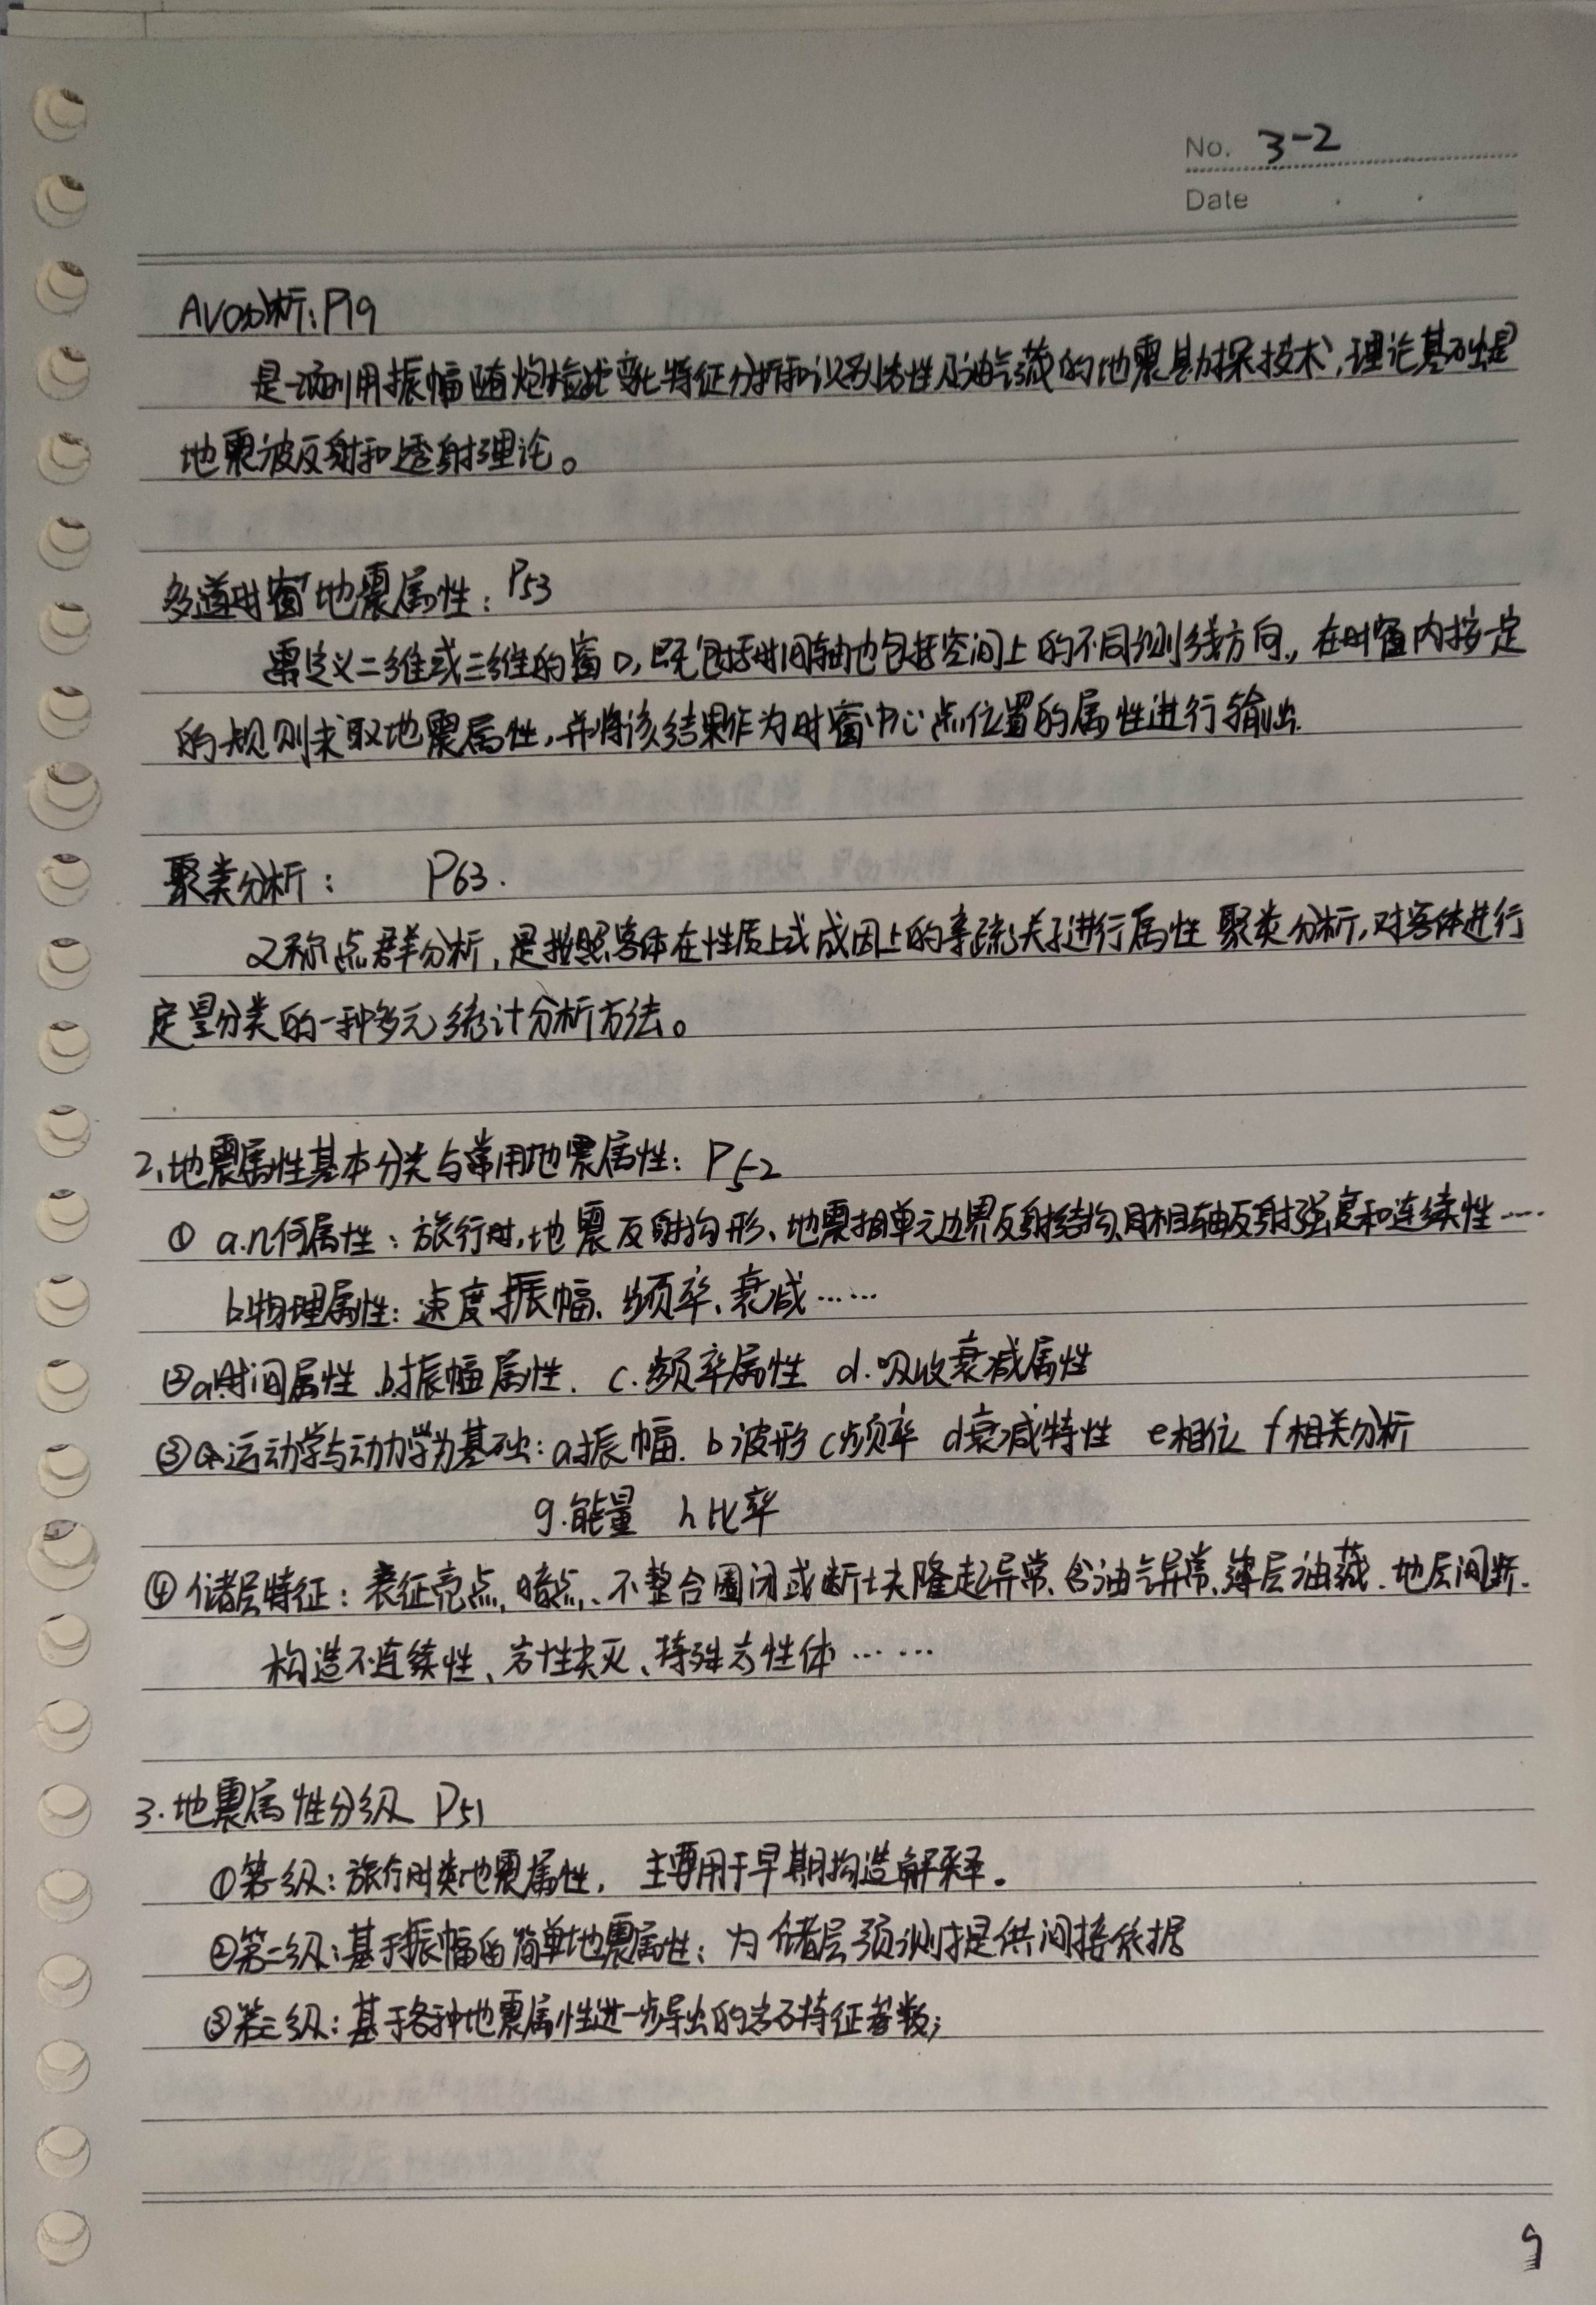 No. 3-2
Date
AVO分析：P19
是一项利用振幅随炮检距变化特征分析和识别岩性及油气藏的地震勘探技术，理论基础是
地震波反射和透射理论。
多道时窗地震属性：P53
需定义二维或三维的窗口，既包括时间轴也包括空间上的不同测线方向，在时窗内按一定
的规则求取地震属性，并将该结果作为时窗中心点位置的属性进行输出.
聚类分析： P63.
又称点群分析，是按照客体在性质上或成因上的亲疏关系进行属性聚类分析，对客体进行
定量分类的一种多元统计分析方法。
2、地震属性基本分类与常用地震属性：P52
① a.几何属性：旅行时，地震反射构形、地震相单元边界反射结构、同相轴反射强度和连续性……
b.物理属性：速度、振幅、频率、衰减……
②a.时间属性 b.振幅属性. c.频率属性 d.吸收衰减属性
③ 运动学与动力学为基础：a.振幅. b 波形 c 频率 d 衰减特性 e 相位 f 相关分析
g.能量 h 比率
④ 储层特征：表征亮点、暗点、不整合圈闭或断块隆起异常、含油气异常、薄层油藏、地层间断、
构造不连续性、岩性尖灭、特殊岩性体……
3.地震属性分级 P51
①第一级：旅行时类地震属性， 主要用于早期构造解释。
②第二级：基于振幅的简单地震属性；为储层预测提供间接依据
③第三级：基于各种地震属性进一步导出的岩石特征参数；
9